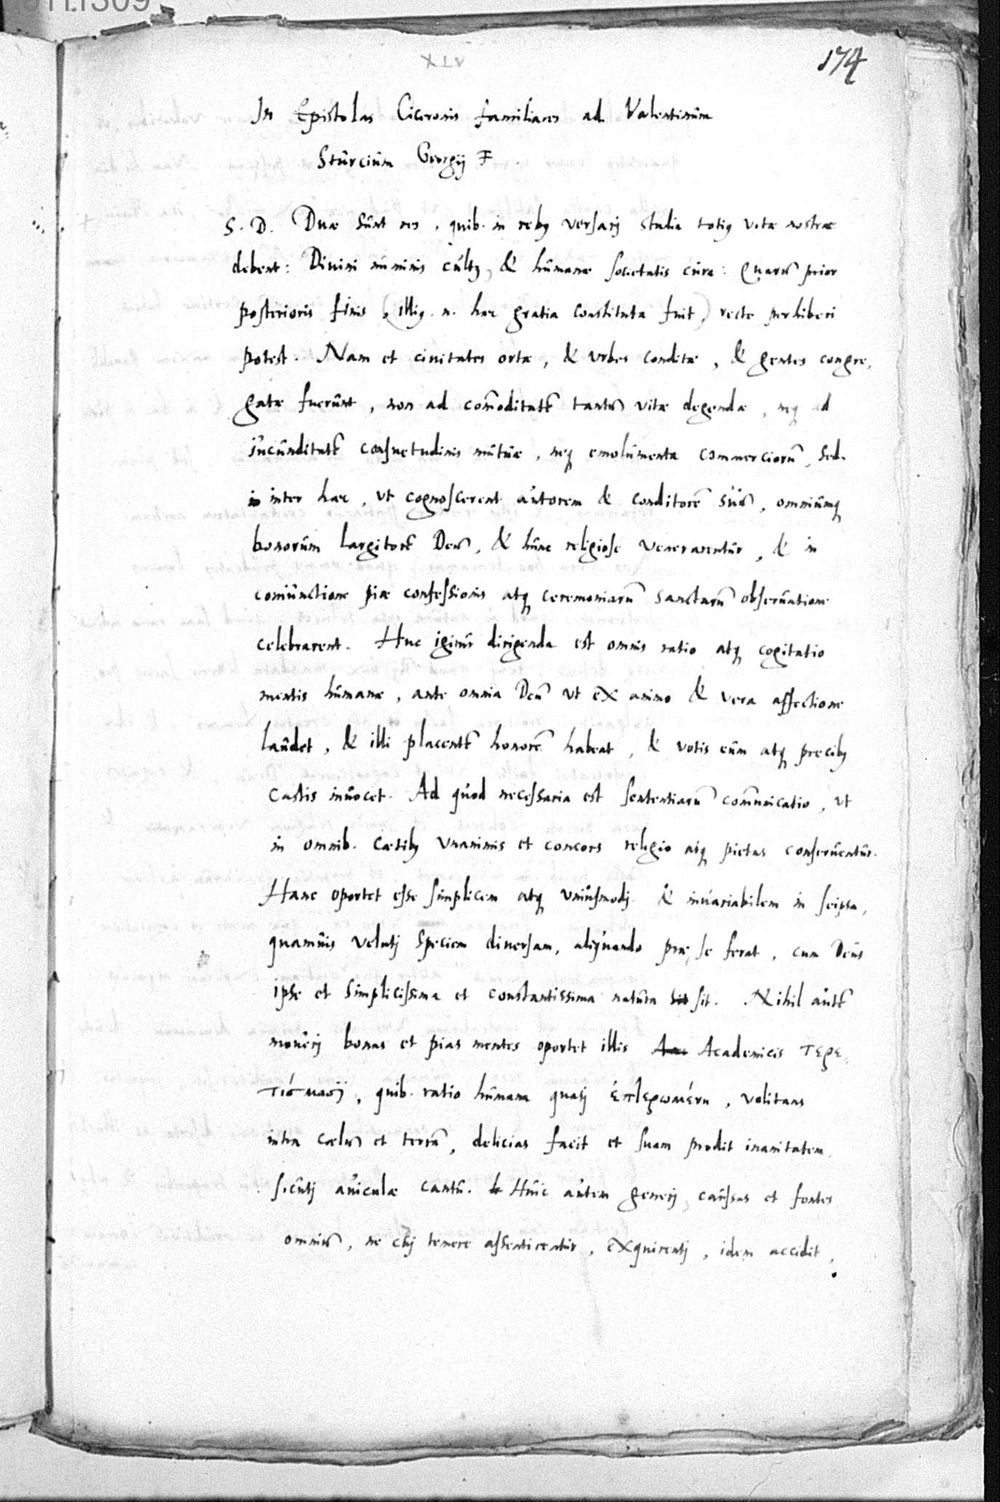 174
XLV
In Epistolas Ciceronis familiares ad Valentinum
Sturcium Georgij F.
S. D. Duæ sunt res, quib. in rebus versari studia totius vitæ nostræ
debent: Divini numinis cultus, & humanæ societatis cura: Quarum prior
posterioris finis (illius n. hæc gratia constituta fuit,) recte perhiberi
potest. Nam et civitates ortæ, & urbes conditæ, & gentes congre,
gatæ fuerunt, non ad com̄oditatē tantum vitæ degendæ, neq ad
iucunditatē consuetudinis mutuæ, neq emolumenta commerciorū, sed.
inter hæc, ut cognoscerent autorem & conditorē suum, omniumq
bonorum largitorē Deum, & hunc religiose venerarentur, & in
coniunctione piæ confessionis atq ceremoniarū sanctarū observatione
celebrarent. Huc igitur dirigenda est omnis ratio atq cogitatio
mentis humanæ, ante omnia Deū ut ex animo & vera affectione
laudet, & illi placentē honorē habeat, & votis eum atq precibus
castis invocet. Ad quod necessaria est sententiarū com̄unicatio, ut
in omnib. cœtibus unanimis et concors religio atq pietas conservetur.
Hanc oportet esse simplicem atq uniusmodi & invariabilem in seipsa,
quamvis velutj speciem diversam, aliquando præ se ferat, cum Deus
ipse et simplicissima et constantissima natura sit. Nihil autē
moverj bonas et pias mentes oportet illis Academicis τερε,
τίσμασι, quib. ratio humana quasj ἐπτερωμένη, volitans
intra cœlum et terrā, delicias facit et suam prodit inanitatem
sicutj aviculæ cantū. Huic autem generj, caussas et fontes
omnium, ne cuj temere assentirentur, exquirentj, idem accidit,